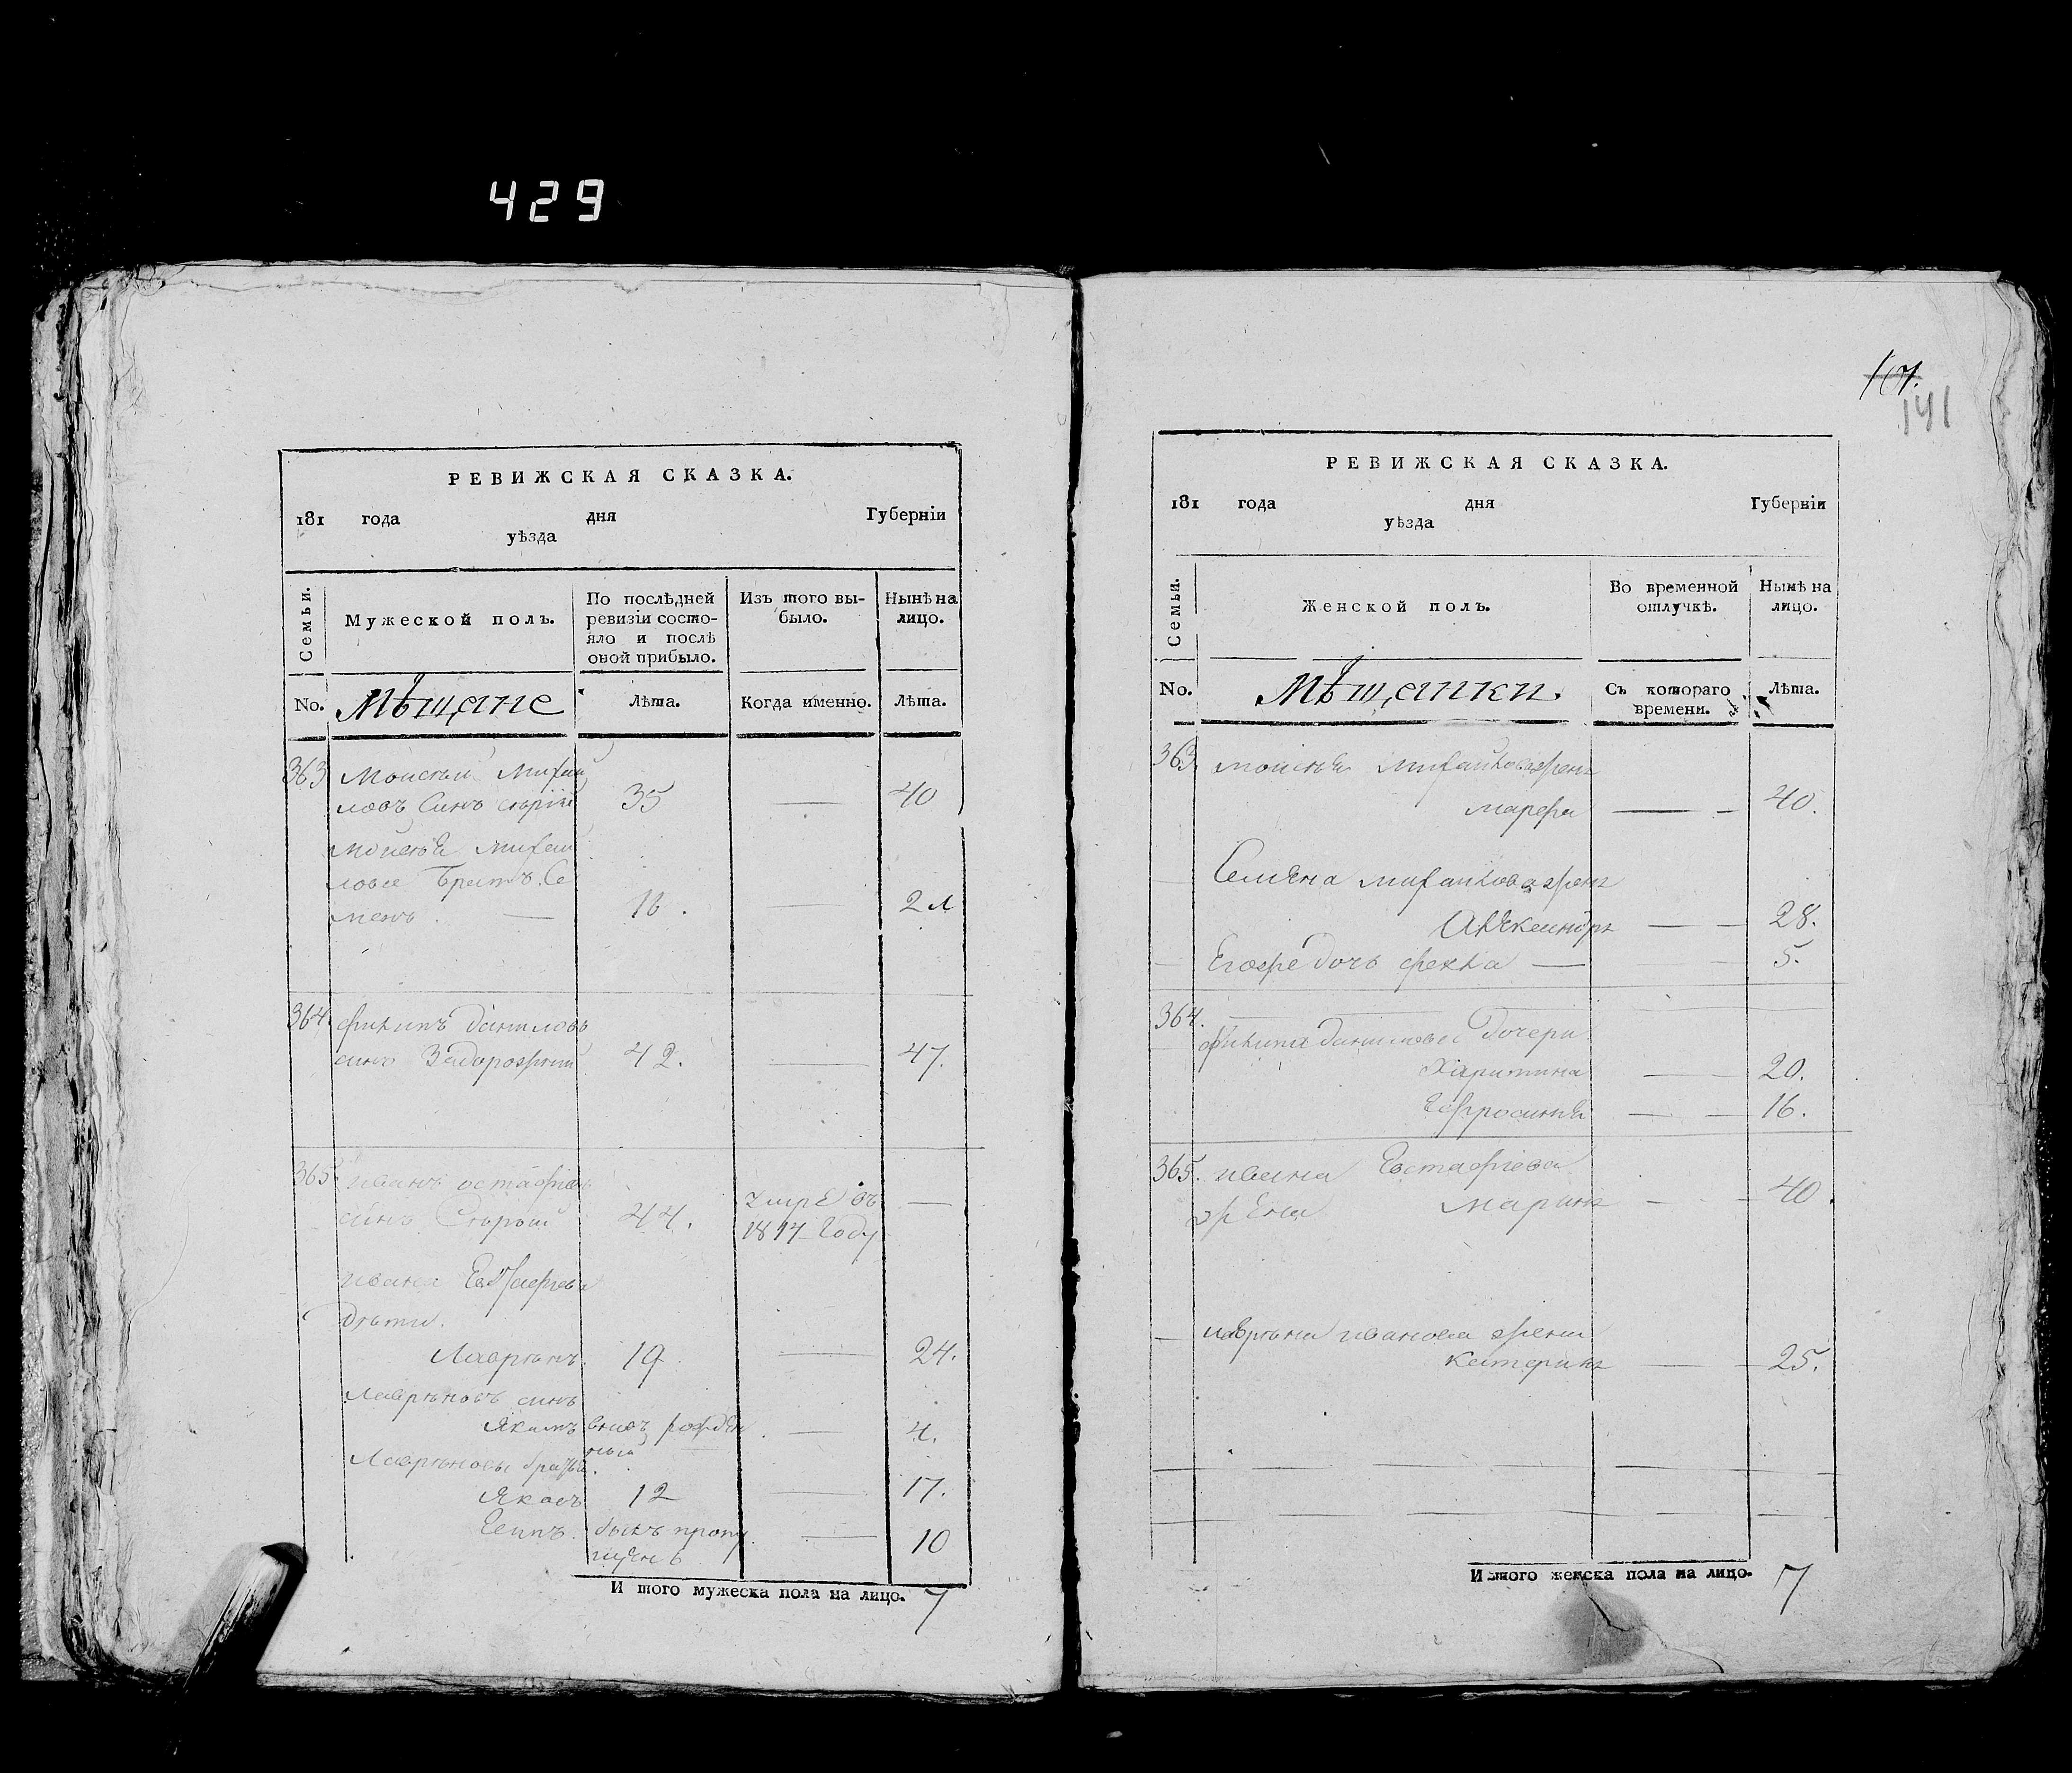 429
РЕВИЖСКАЯ СКАЗКА.
181 года дня Губерніи
уѣзда
Семьи.
Мужеской полъ.
По послѣдней ревизіи состо-
яло и послѣ
оной прибыло.
Изъ того вы-
было.
Нынѣ на
лицо.
No. Мѣщане Лѣта. Когда именно. Лѣта.
363 Моисѣй Михай
ловъ Синъ 35 — 40
Моисѣя Михай
лова Братъ Се
менъ. — 16. —
364. Филипъ Даниловъ
синъ Задорожній 42. — 47.
365. иванъ остафіевъ
синъ Старый 44. Умре въ 1817 Году —
ивана Евстафіева
дѣти.
Лаврѣнъ. 19. — 24.
Лаврѣновъ синъ
Якимъ внов рожден
ный — 4.
Лаврѣновы братья.
Яковъ 12 — 17.
Есипъ. былъ пропу
щенъ — 10
И того мужеска пола на лицо. 7
141
РЕВИЖСКАЯ СКАЗКА.
181 года дня Губерніи
уѣзда
Семьи.
Женской полъ.
Во временной
отлучкѣ.
Нынѣ на
лицо.
No. Мѣщанки. Съ котораго
времени. Лѣта.
363. Моисѣя Михайлова жена
Марфа — — 40.
Семена Михайлова жена
— — 28.
Егоже дочь Фекла — — 5.
364.
Филипа Данилова Дочери
Харитина — 20.
Ефросинія — — 16.
365. ивана Евстафіева
жена Марина — — 40.
— лаврѣна иванова жена
Катерина — — 25.
И того женска пола на лицо. 7